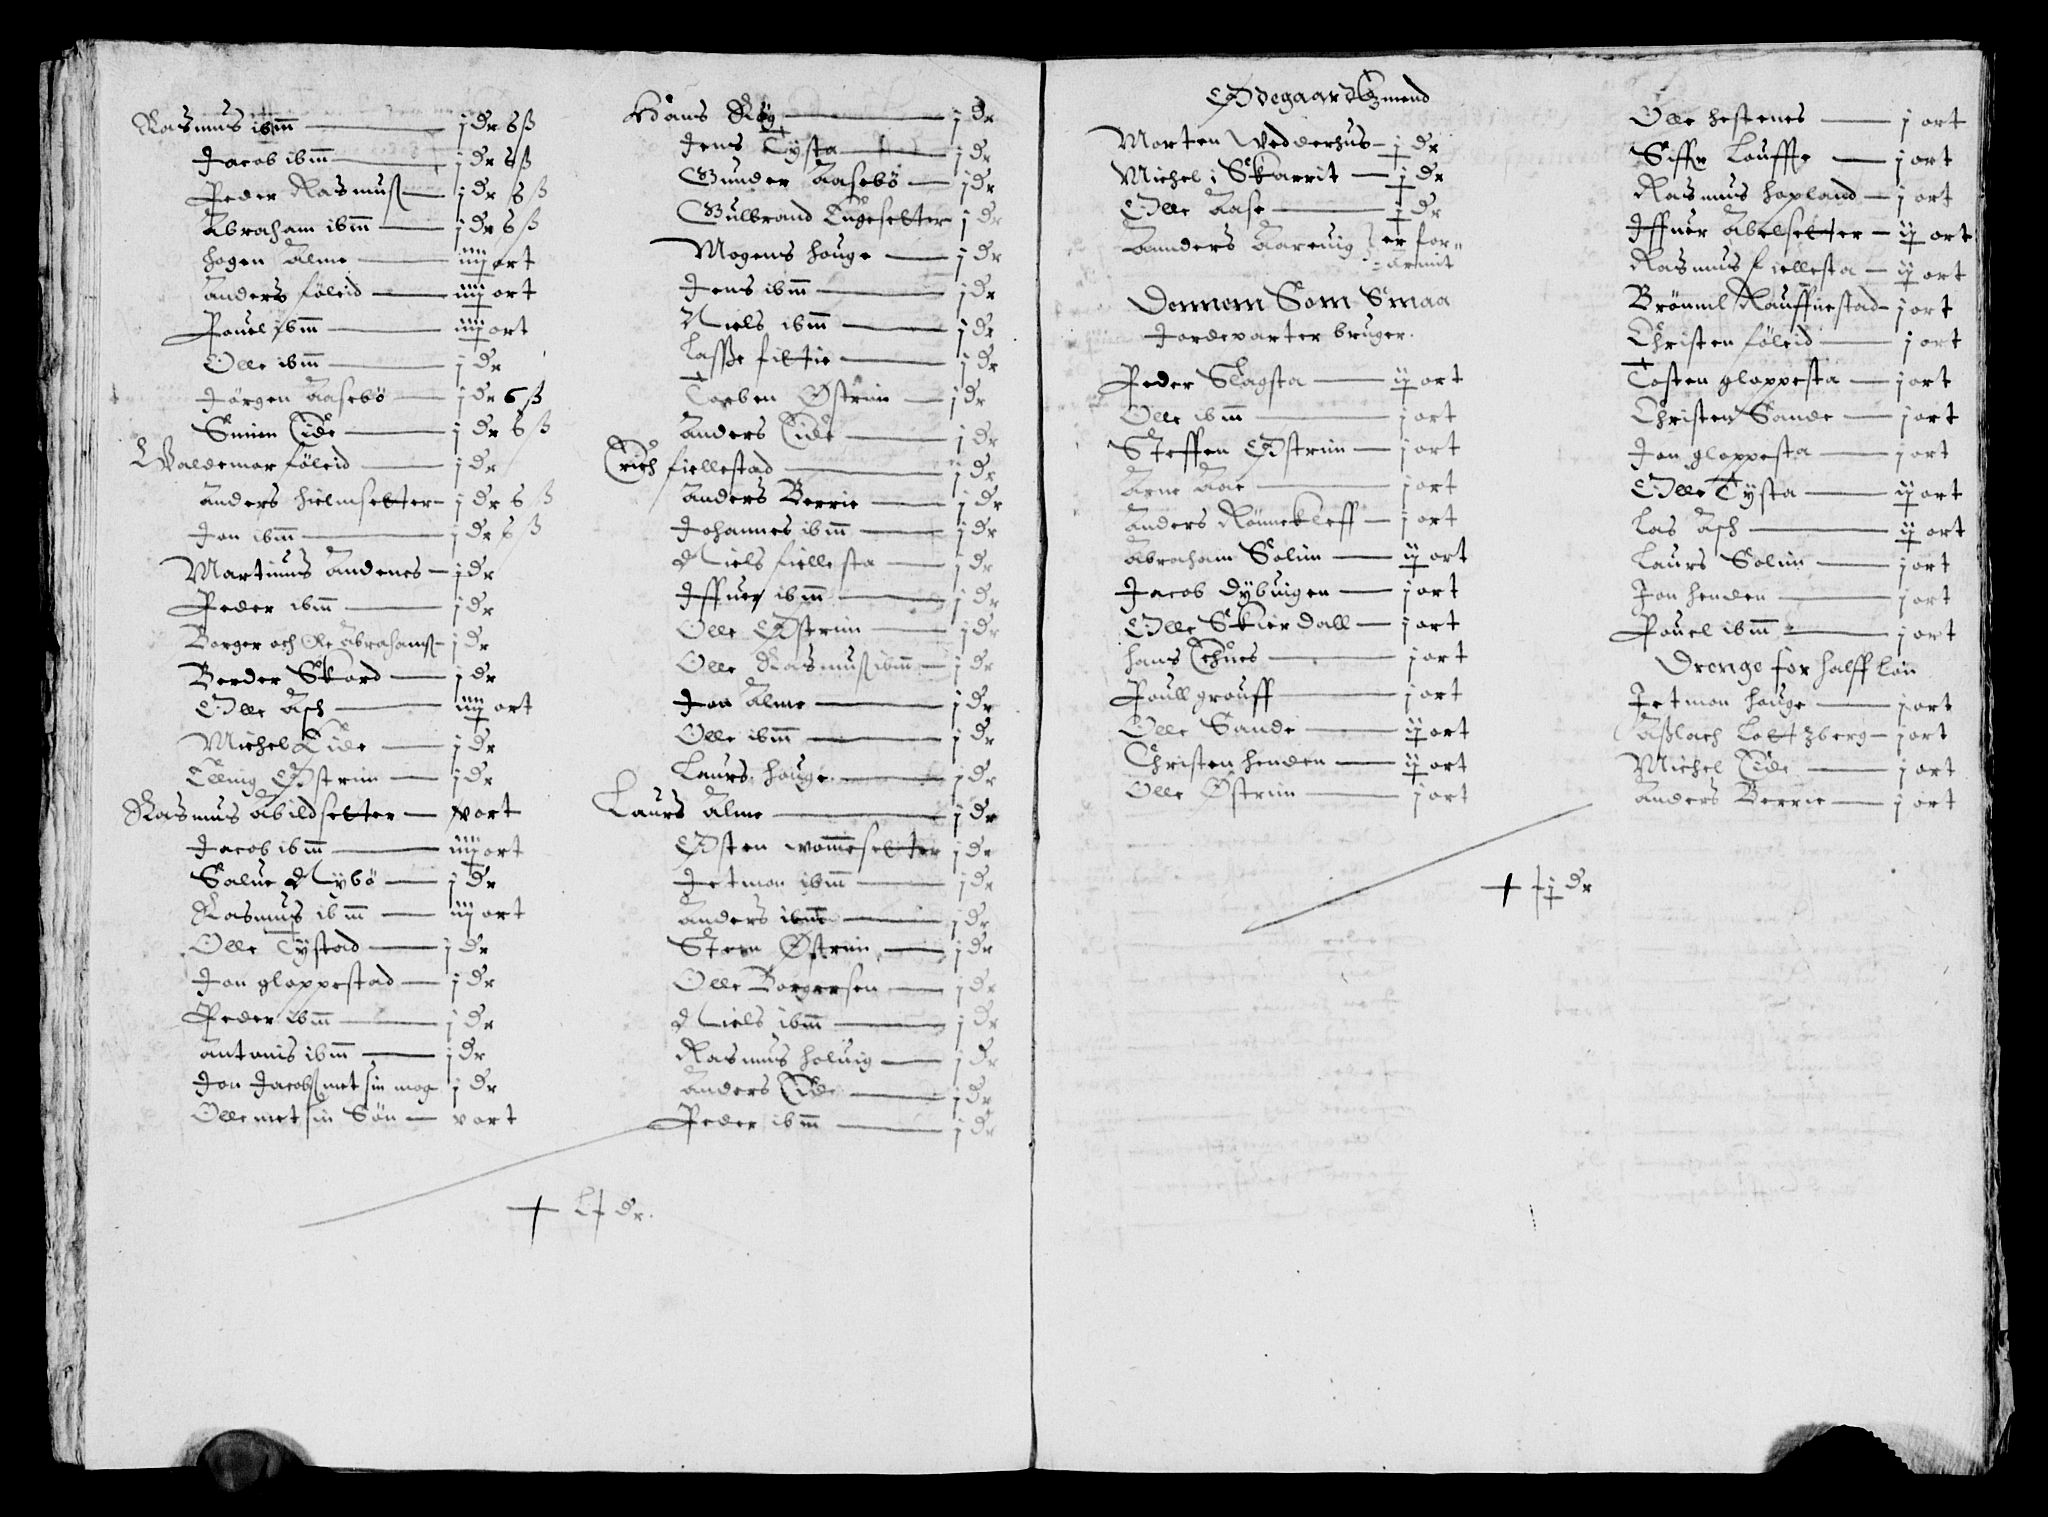 Rasmus ibm — j dr 6 ß
Jacob ibm — j dr 6 ß
Peder Rasmuß — j dr 6 ß
Abraham ibm — j dr 6 ß
hogen Alme — iiij ort
Anders föleid — iiij ort
Pouel ibm — iiij ort
Olle ibm — j dr
Jörgen Aasebö — j dr 6 ß
Simen Eide — j dr 6 ß
Waldemar föleid — j dr
Anders hielmsetter — j dr 6 ß
Jon ibm — j dr 6 ß
Martinus Andenes — j dr
Peder ibm — j dr
Borger och Ole Abrahamß — j dr
Berder Skord — j dr
Olle Asch — iiij ort
Michel Eide — j dr
Elling Østrim — j dr
Rasmus Abildsetter — v ort
Jacob ibm — iiij ort
Salue Nybö — j dr
Rasmus ibm — iiij ort
Olle Tystad — j dr
Jon gloppestad — j dr
Peder ibm — j dr
Antonis ibm — j dr
Jon Jacobß met sin mog j dr
Olle met sin Sön — v ort
Hans Røg — j dr
Jens Tysta — j dr
Gunder Aasebö — j dr
Gulbrand Engesetter j dr
Mogens houge — j dr
Jens ibm — j dr
Niels ibm — j dr
Lasse fittie — j dr
Torben Østrim — j dr
Anders Eide — j dr
Erich fiellestad — j dr
Anders Berrie — j dr
Johannes ibm — j dr
Niels fiellesta — j dr
Iffuer ibm — j dr
Olle Østrim — j dr
Olle Rasmuß ibm — j dr
Jon Alme — j dr
Olle ibm — j dr
Laurs houge — j dr
Laurs Alme — j dr
Østen wommesetter j dr
Jetmon ibm — j dr
Anders ibm — j dr
Steen Østrim — j dr
Olle Borgersen — j dr
Niels ibm — j dr
Rasmus holuig — j dr
Anders Eide — j dr
Peder ibm — j dr
dr.
Ødegaardtzmend
Morten Wedderhus — j dr
Michel i Skarrit — j dr
Olle Aase — j dr
Aanders Aareuig er for=
=armit
Dennem Som Smaa
Jordeparter bruger.
Peder Slagsta — ij ort
Olle ibm — j ort
Steffen Østrim — j ort
Arne Aae — j ort
Anders Rönnekleff — j ort
Abraham Solim — ij ort
Jacob dybuigen — j ort
Olle Skierdall — j ort
hans — j ort
Poull grouff — j ort
Olle Sande — ij ort
Christen henden — ij ort
Olle Østrim — j ort
Olle hestenes — j ort
Siffr Louffte — j ort
Rasmus hopland — j ort
Iffuer Abelsetter — ij ort
Rasmus fiellesta — ij ort
Brömel Rauffnestad — j ort
Christen föleid — j ort
Tosten gloppesta — j ort
Christen Sande — j ort
Jon gloppesta — j ort
Olle Tysta — ij ort
Las Asch — ij ort
Laurs Solim — j ort
Jon henden — j ort
Pouel ibm — j ort
Drenge for halff lön
Jetmon houge — j ort
Aßlach Lottzberg — j ort
Michel Eide — j ort
Anders Berrie — j ort
dr